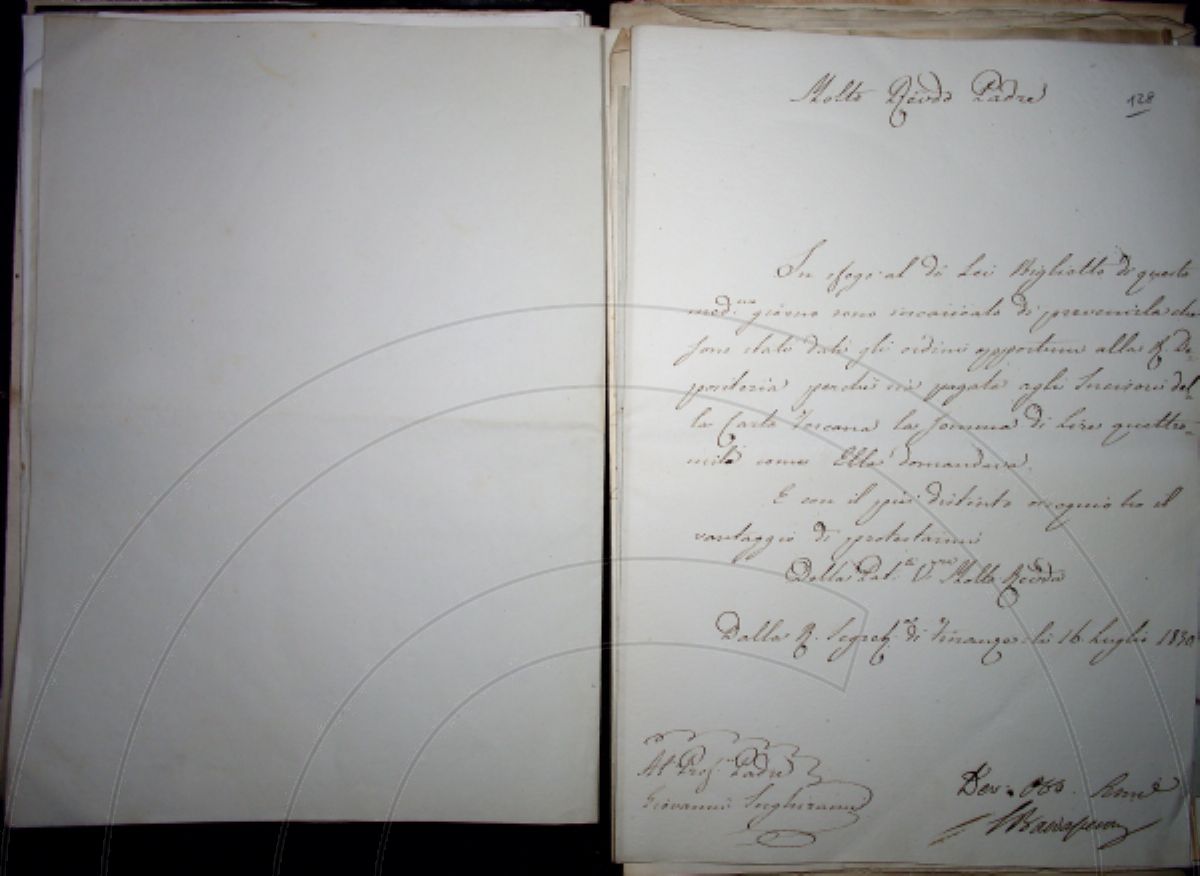 Molto Revdo Padre
128
In sfogo al di Lei Biglietto di questo
med.mo giorno sono incaricato di prevenirla che
sono stati dati gli ordini opportuni alla R. De-
positeria perchè sia pagata agli Incisori del-
la Carta Toscana la somma di Lire quattro-
mila come Ella domandava.
E con il più distinto ossequio ho il
vantaggio di protestarmi
Della Pat.tà V. Molto Revda
Dalla R. Segret. di Finanze li 16 Luglio 1830
Al Prof. Padre
Giovanni Inghirami
Dev. Obb. Serve